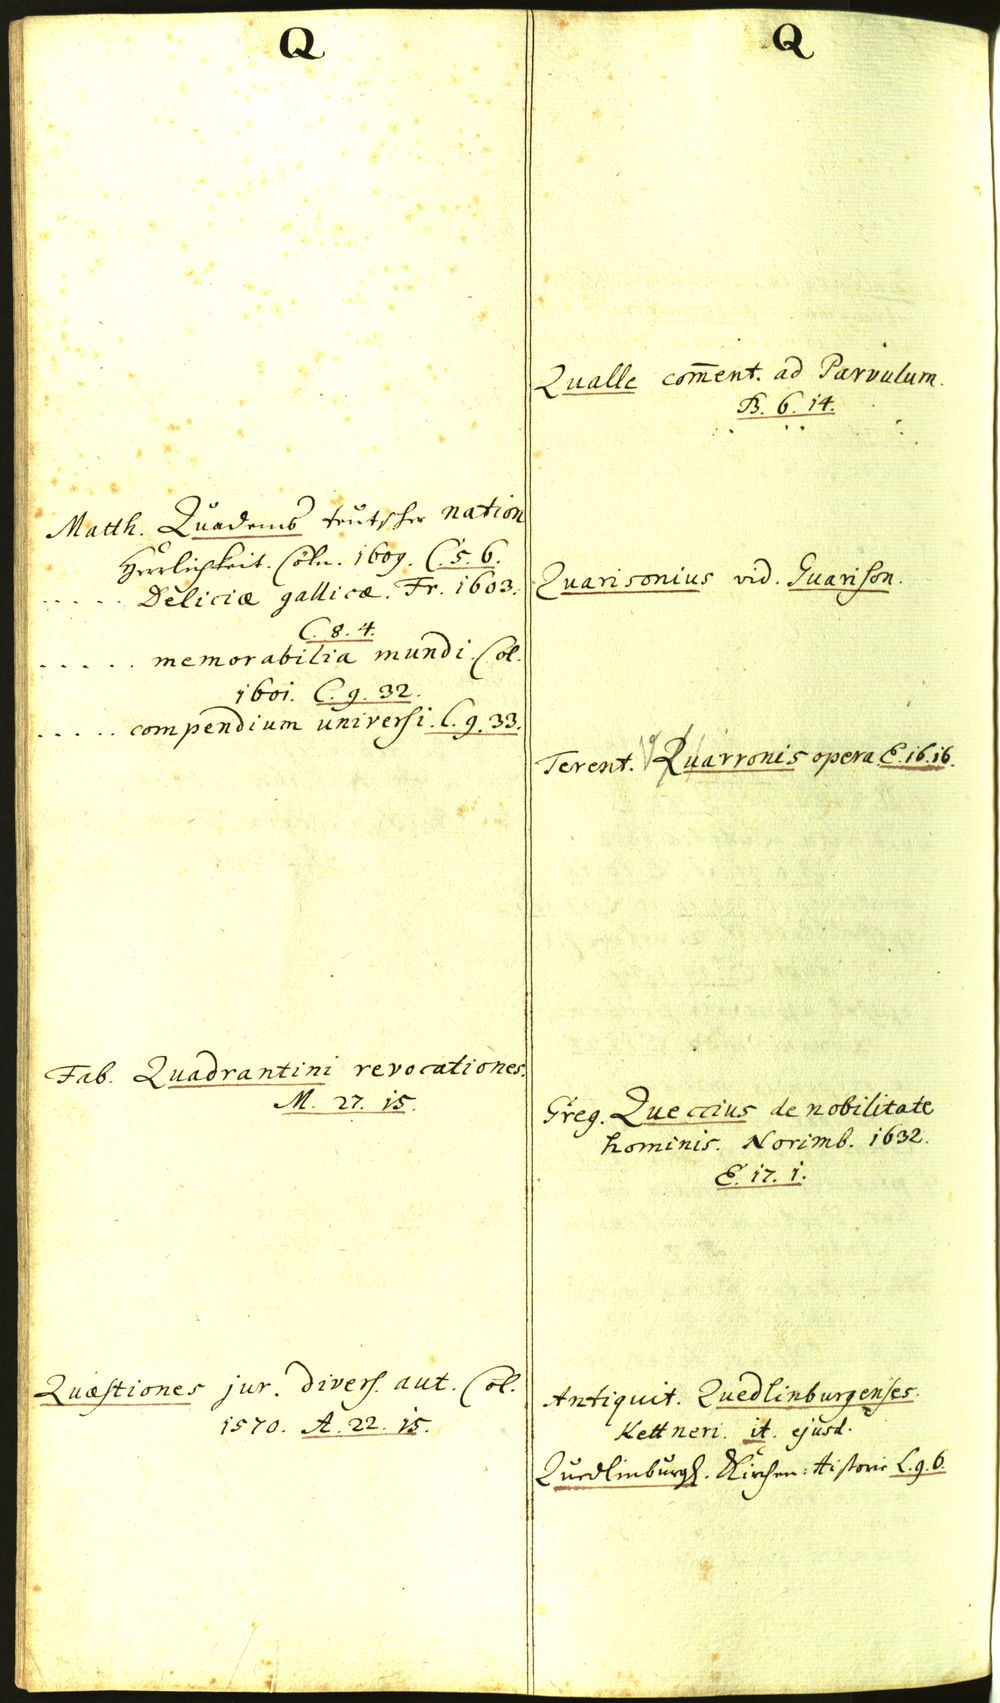 Q
Matth. Quadens teutscher nation
Herrlichkeit. Cöln. 1609. C. 5. 6.
..... Deliciæ gallicæ. Fr. 1603.
C. 8. 4.
..... memorabilia mundi. Col.
1601. C. 9. 32.
..... compendium universi. C. 9. 33.
Fab. Quadrantini revocationes.
M. 27. 15.
Quæstiones jur. divers. aut. Col.
1570. A. 22. 15.
Q
Qualle com̄ent. ad Parvulum.
B. 6. 14.
Quarisonius vid. Guarison.
Terent. Quarronis opera E. 16. 16.
Greg. Queccius de nobilitate
hominis. Norimb. 1632.
E. 17. 1.
Antiquit. Quedlinburgenses.
Kettneri. it. ejusd.
Quedlinburgl. Kirchen-Historie L. 9. 6.